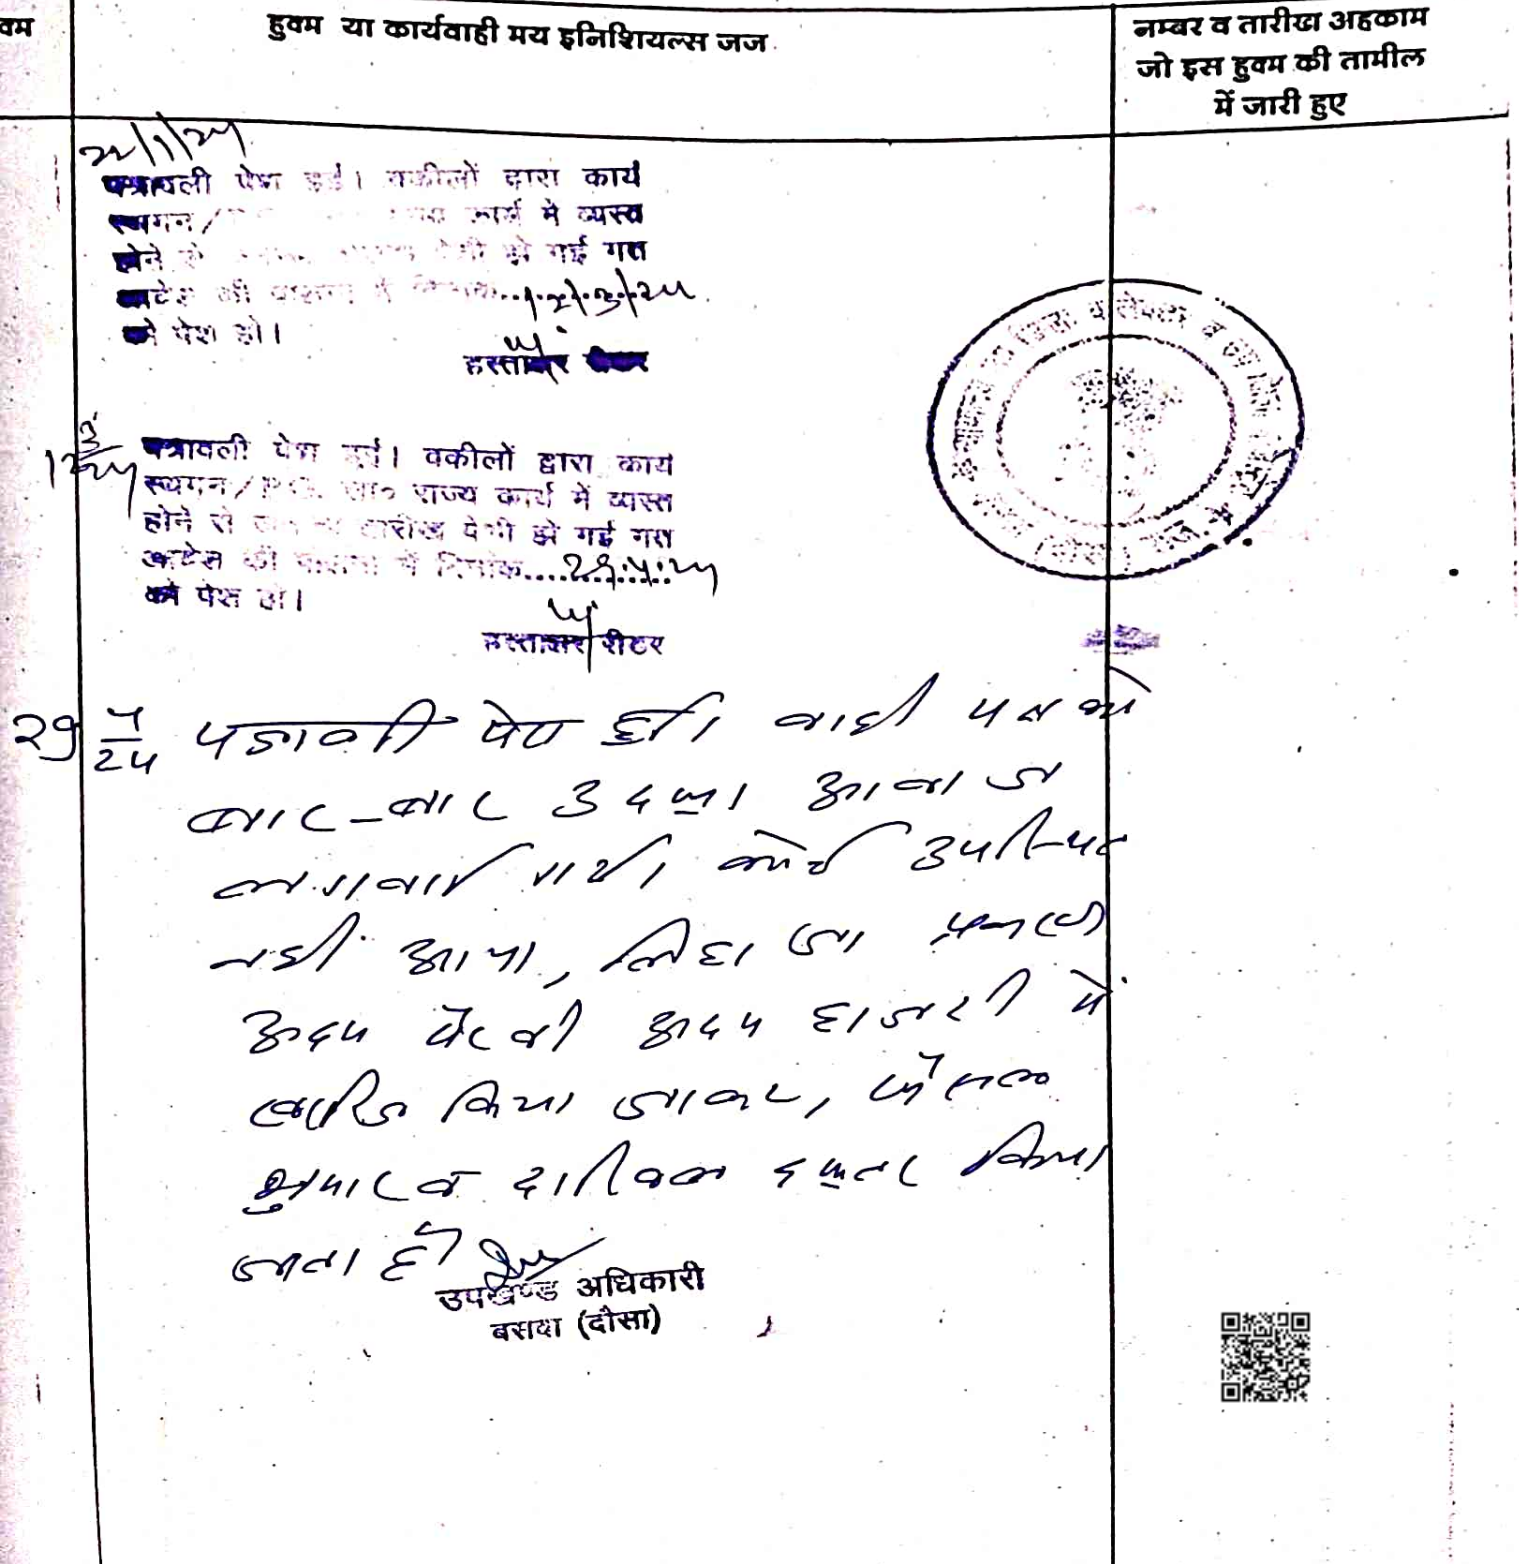 हुक्म या कार्यवाही मय इनिशियल्स जज
नम्बर व तारीख अहकाम
जो इस हुक्म की तामील
में जारी हुए
पत्रावली पेश हुई। वकीलों द्वारा कार्य
स्थगन/ कार्य में व्यस्त
होने से पेशी हो गई गत
आदेश की पालना में दिनांक
को पेश हो।
हस्ताक्षर रीडर
पत्रावली पेश हुई। वकीलों द्वारा कार्य
स्थगन/P.O. सा० राज्य कार्य में व्यस्त
होने से तारीख पेशी हो गई गत
आदेश की पालना में दिनांक
को पेश हो।
हस्ताक्षर रीडर
29 4/24 पत्रावली पेश हुई। वादी पक्ष को
बार-बार आवाज
लगवाई गयी। कोई उपस्थित
नहीं आया, लिहाजा प्रकरण
अदम पैरवी अदम हाजरी में
खारिज किया जाकर, फैसल
शुमार व दाखिल दफ्तर किया
जाता है
उपखण्ड अधिकारी
बसवा (दौसा)